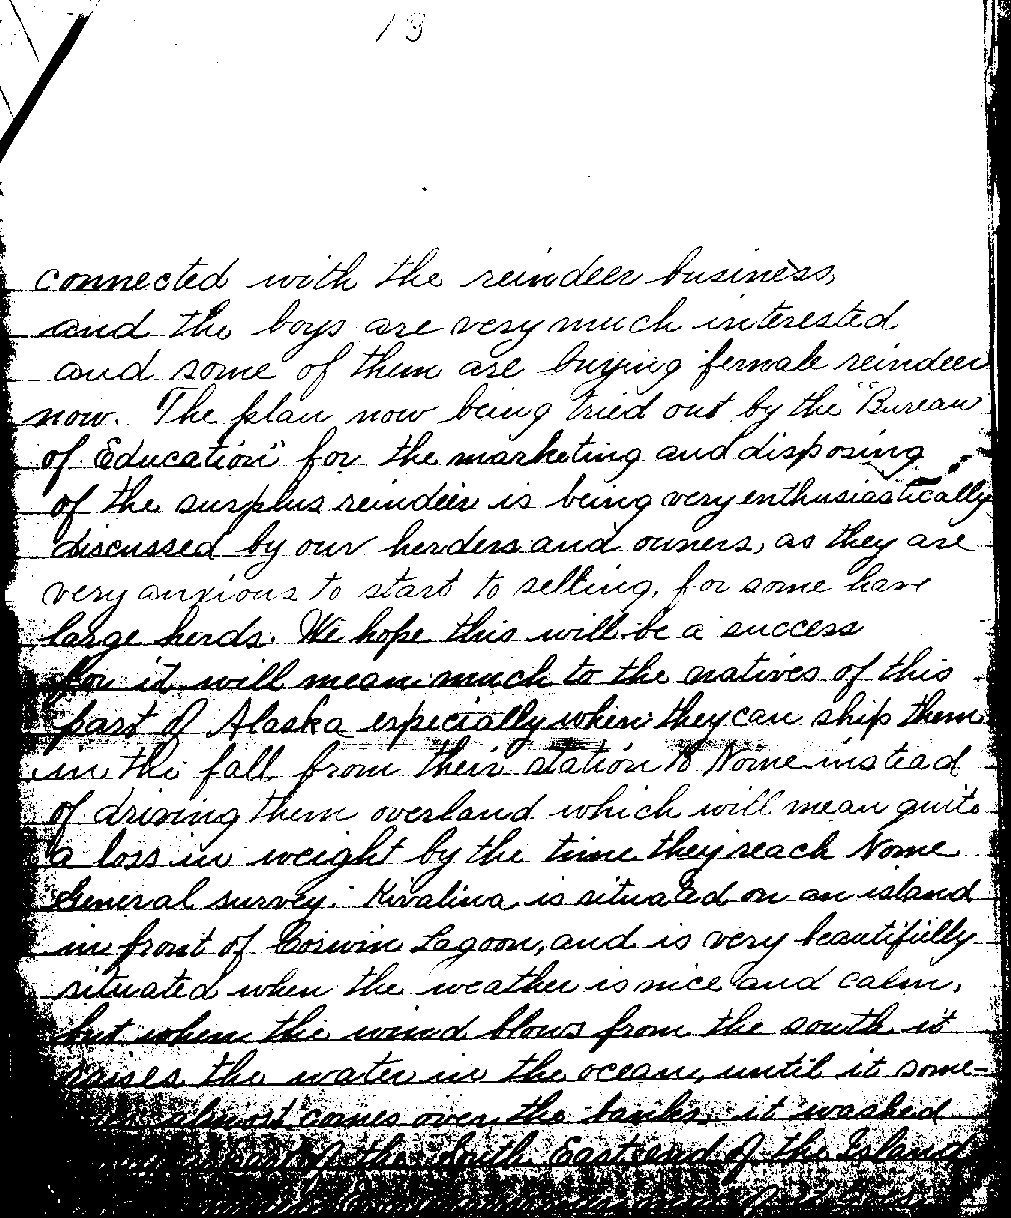 13
connected with the reindeer business,
and the boys are very much interested
and some of them are buying female reindeer
now. The plan now being tried out by the "Bureau
of Education" for the marketing and disposing
of the surplus reindeer is being very enthusiastically
discussed by our herders and owners, as they are
very anxious to start to selling, for some have
large herds. We hope this will be a success
for it will mean much to the natives of this
part of Alaska especially when they can ship them
in the fall from their station to Nome instead
of driving them overland which will mean quite
a loss in weight by the time they reach Nome
General survey. Kivalina is situated on an island
in front of Corwin Lagoon, and is very beautifully
situated when the weather is nice and calm,
but when the wind blows from the south it
raises the water in the ocean, until it some-
almost comes over the banks, it washed
part of the South East end of the Island